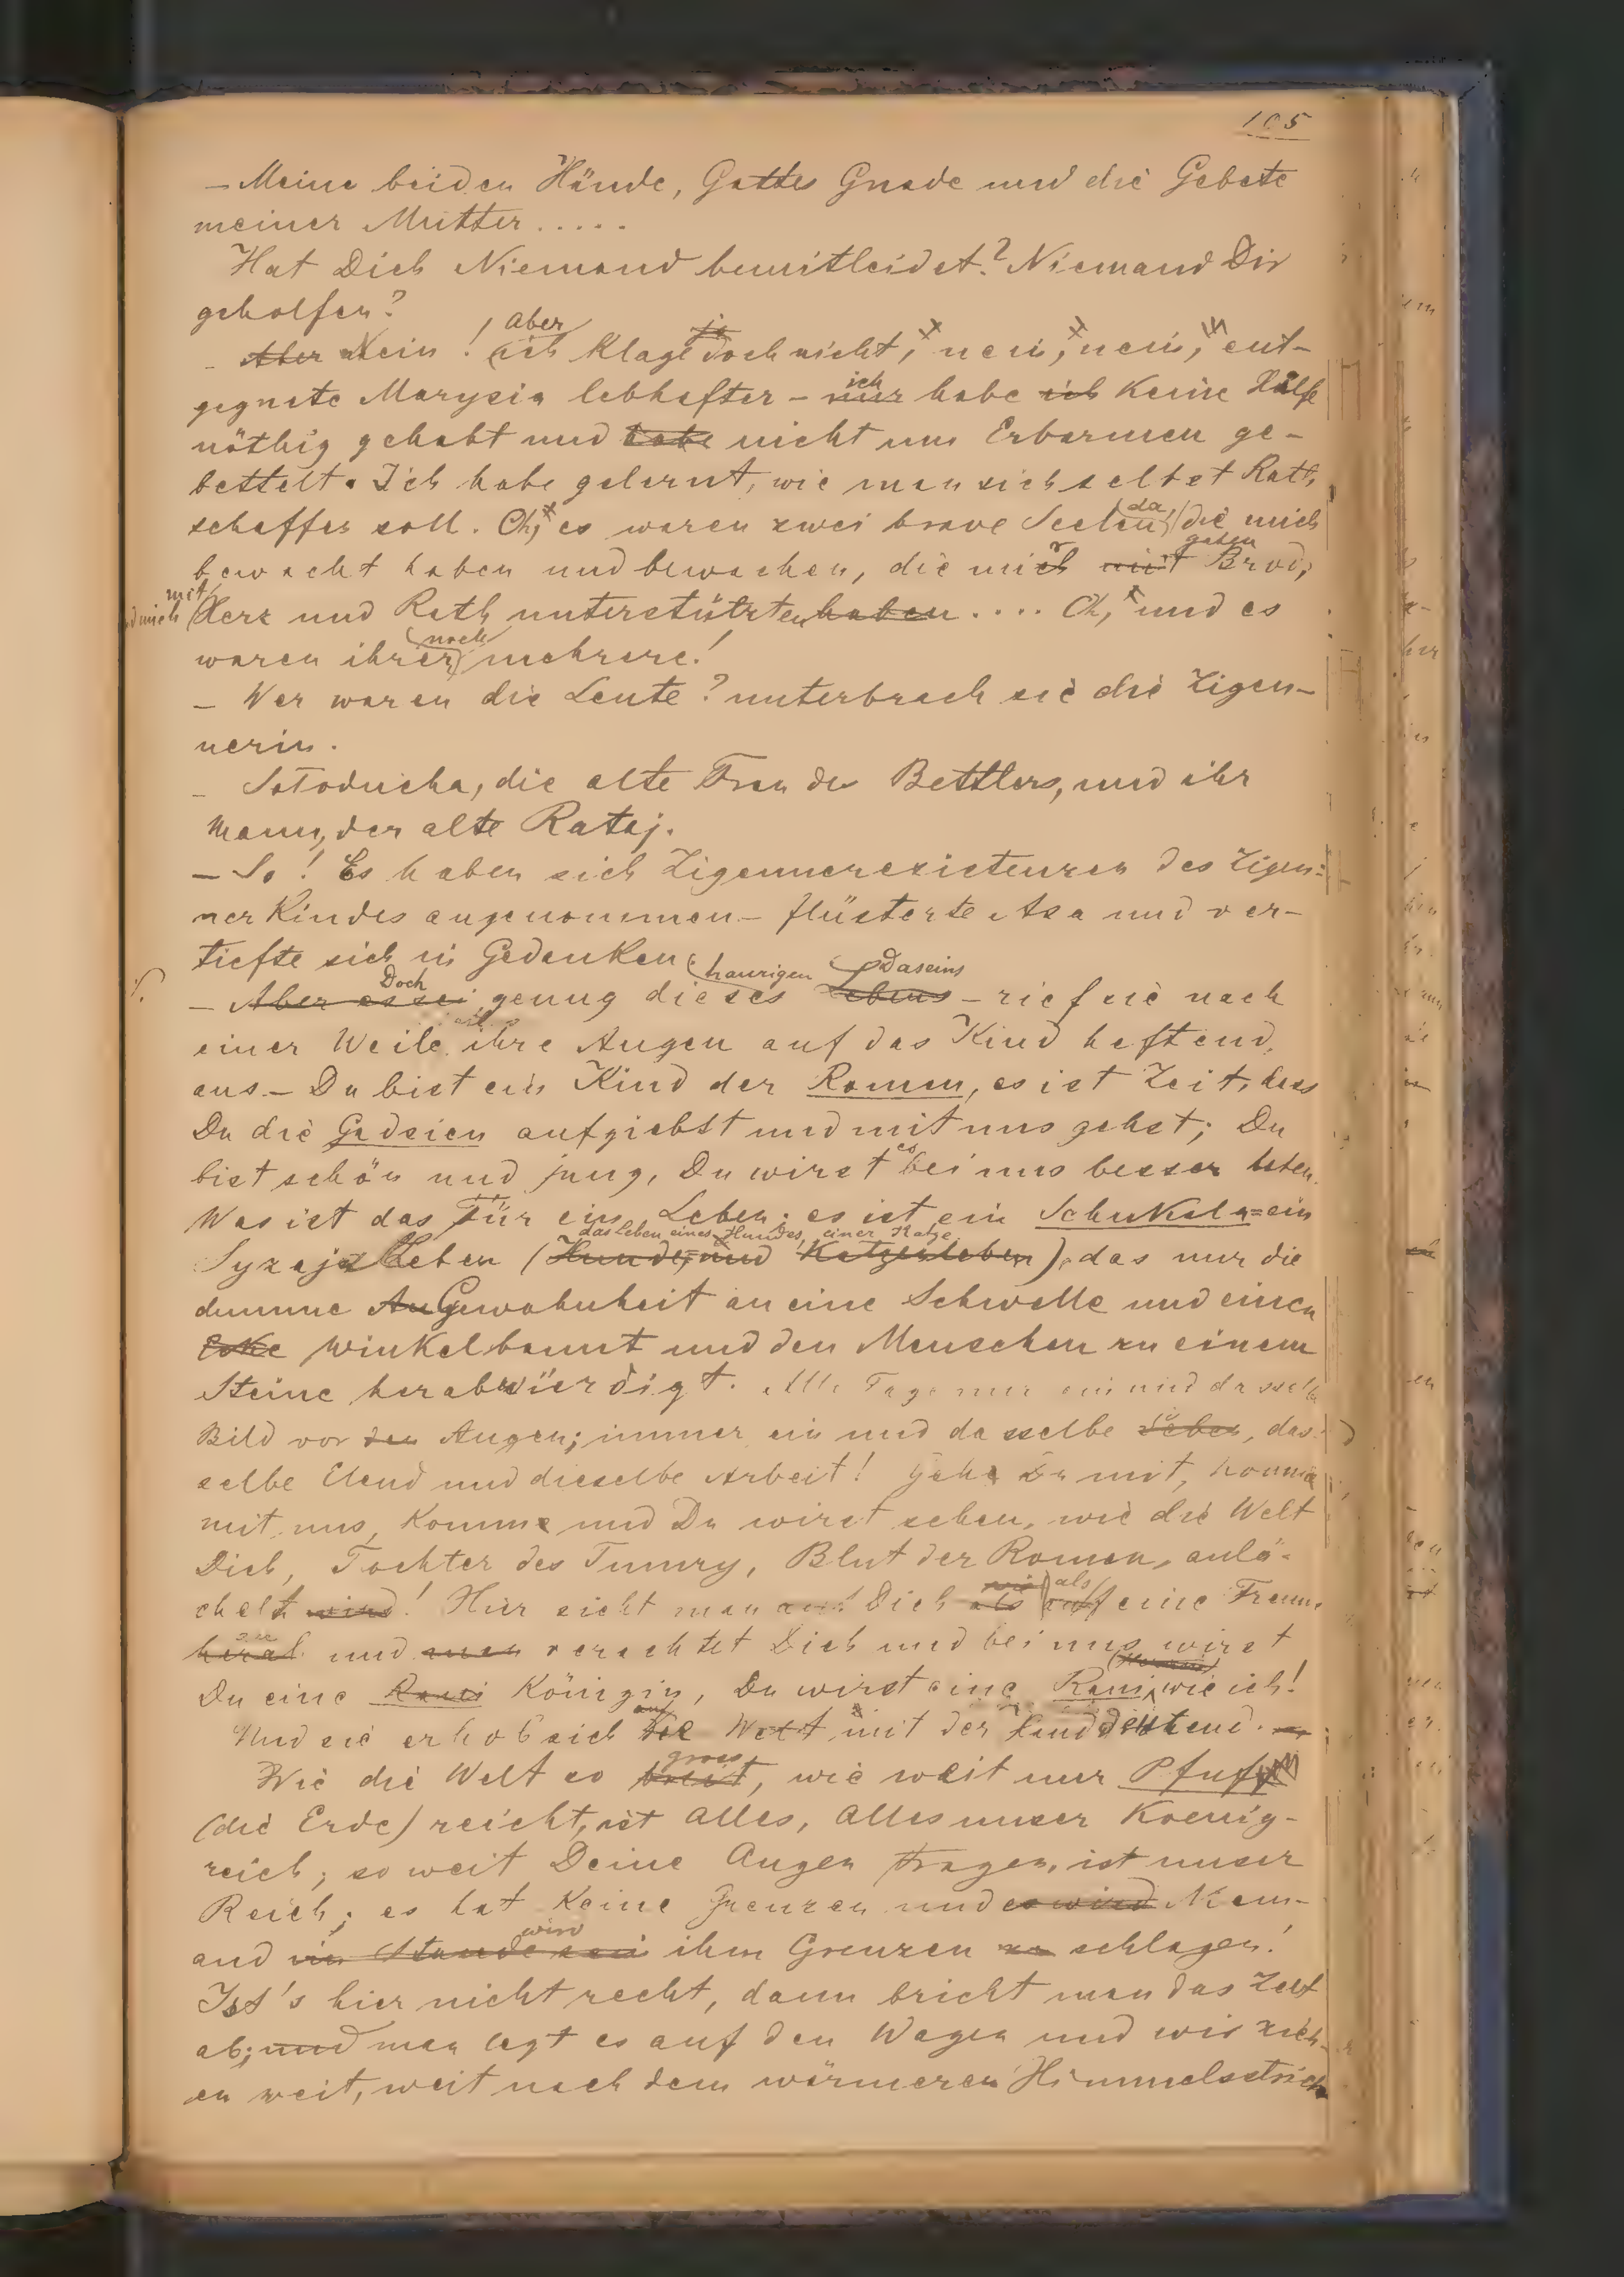 105
– Meine beiden Hände, Gottes Gnade und die Gebete
meiner Mutter.....
Hat Dich Niemand bemitleidet? Niemand Dir
geholfen?
– Aber Nein! aber ich klage ja doch nicht, nein, nein, ent-
gegnete Marysia lebhafter – nur ich habe ich keine Hülfe
nöthig gehabt und habe nicht um Erbarmen ge-
bettelt. Ich habe gelernt, wie man sich selbst Rath
schaffen soll. Oh, es waren zwei brave Seelen da, die mich
bewacht haben und bewachen, die mir mit gaben Brod,
und mich mit Herz und Rath unterstützten haben.... Oh, und es
waren ihrer noch mehrere!
– Wer waren die Leute? unterbrach sie die Zigeu-
nerin.
– Sołoducha, die alte Frau des Bettlers, und ihr
Mann, der alte Rataj.
– So! Es haben sich Zigeunerexistenzen des Zigeu-
nerkindes angenommen – flüsterte Aza und ver-
tiefte sich in Gedanken.
– Aber es sei Doch genug dieses traurigen Lebens Daseins – rief sie nach
einer Weile, ihre Augen auf das Kind heftend,
aus. – Du bist ein Kind der Romen, es ist Zeit, dass
Du die Gadzien aufgiebst und mit uns gehst; Du
bist schön und jung, Du wirst es bei uns besser haben.
Was ist das für ein Leben; es ist ein Schukeln = ein
Syzaja Leben (Hunde, und Katzenleben das Leben eines Hundes, einer Katze), das nur die
dumme An Gewohnheit an eine Schwelle und einen
Ecke Winkel bannt und den Menschen zu einem
Steine herabwürdigt. Alle Tage nur ein und dasselbe
Bild vor den Augen; immer ein und dasselbe Leben, das-
selbe Elend und dieselbe Arbeit! Gehe Du mit, komme
mit uns, komme und Du wirst sehen, wie die Welt
Dich, Tochter des Tumry, Blut der Romen, anlä-
chelt wird! Hier sieht man auf Dich als wie als auf eine Fremde
herab und man verachtet Dich und bei uns wirst
Du eine Rani Königin, Du wirst eine Rani, wie ich!
Und sie erhob sich auf die Welt mit der Hand deutend.
Wie die Welt so breit gross, wie weit nur Pfuf
(die Erde) reicht, ist Alles, Alles unser Koenig-
reich; so weit Deine Augen tragen, ist unser
Reich; es hat keine Grenzen und es wird Niem-
and im Stande sein wird ihm Grenzen zu schlagen!
Ist's hier nicht recht, dann bricht man das Zelt
ab; und man legt es auf den Wagen und wir zieh-
en weit, weit nach dem wärmeren Himmelsstrich